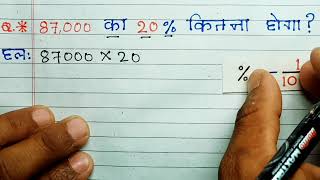 Q.* 87,000 का 20% कितना होगा?
हल: 87000 × 20
% = 1/10